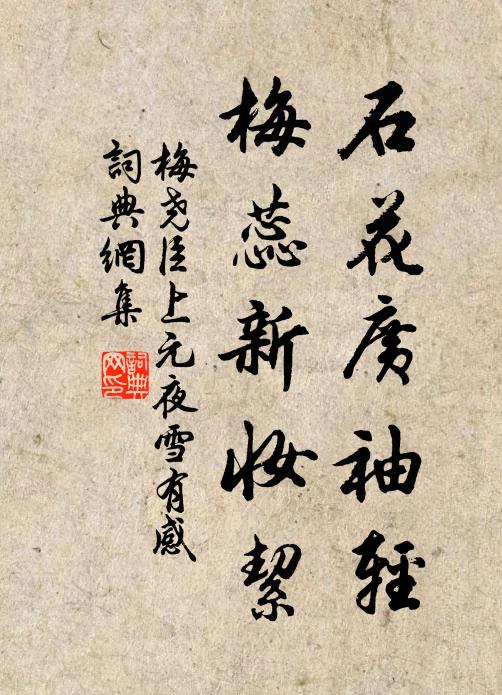 石花廣袖輕
梅蕊新妝潔
梅尧臣上元夜雪有感
詞典網集
詞典網印